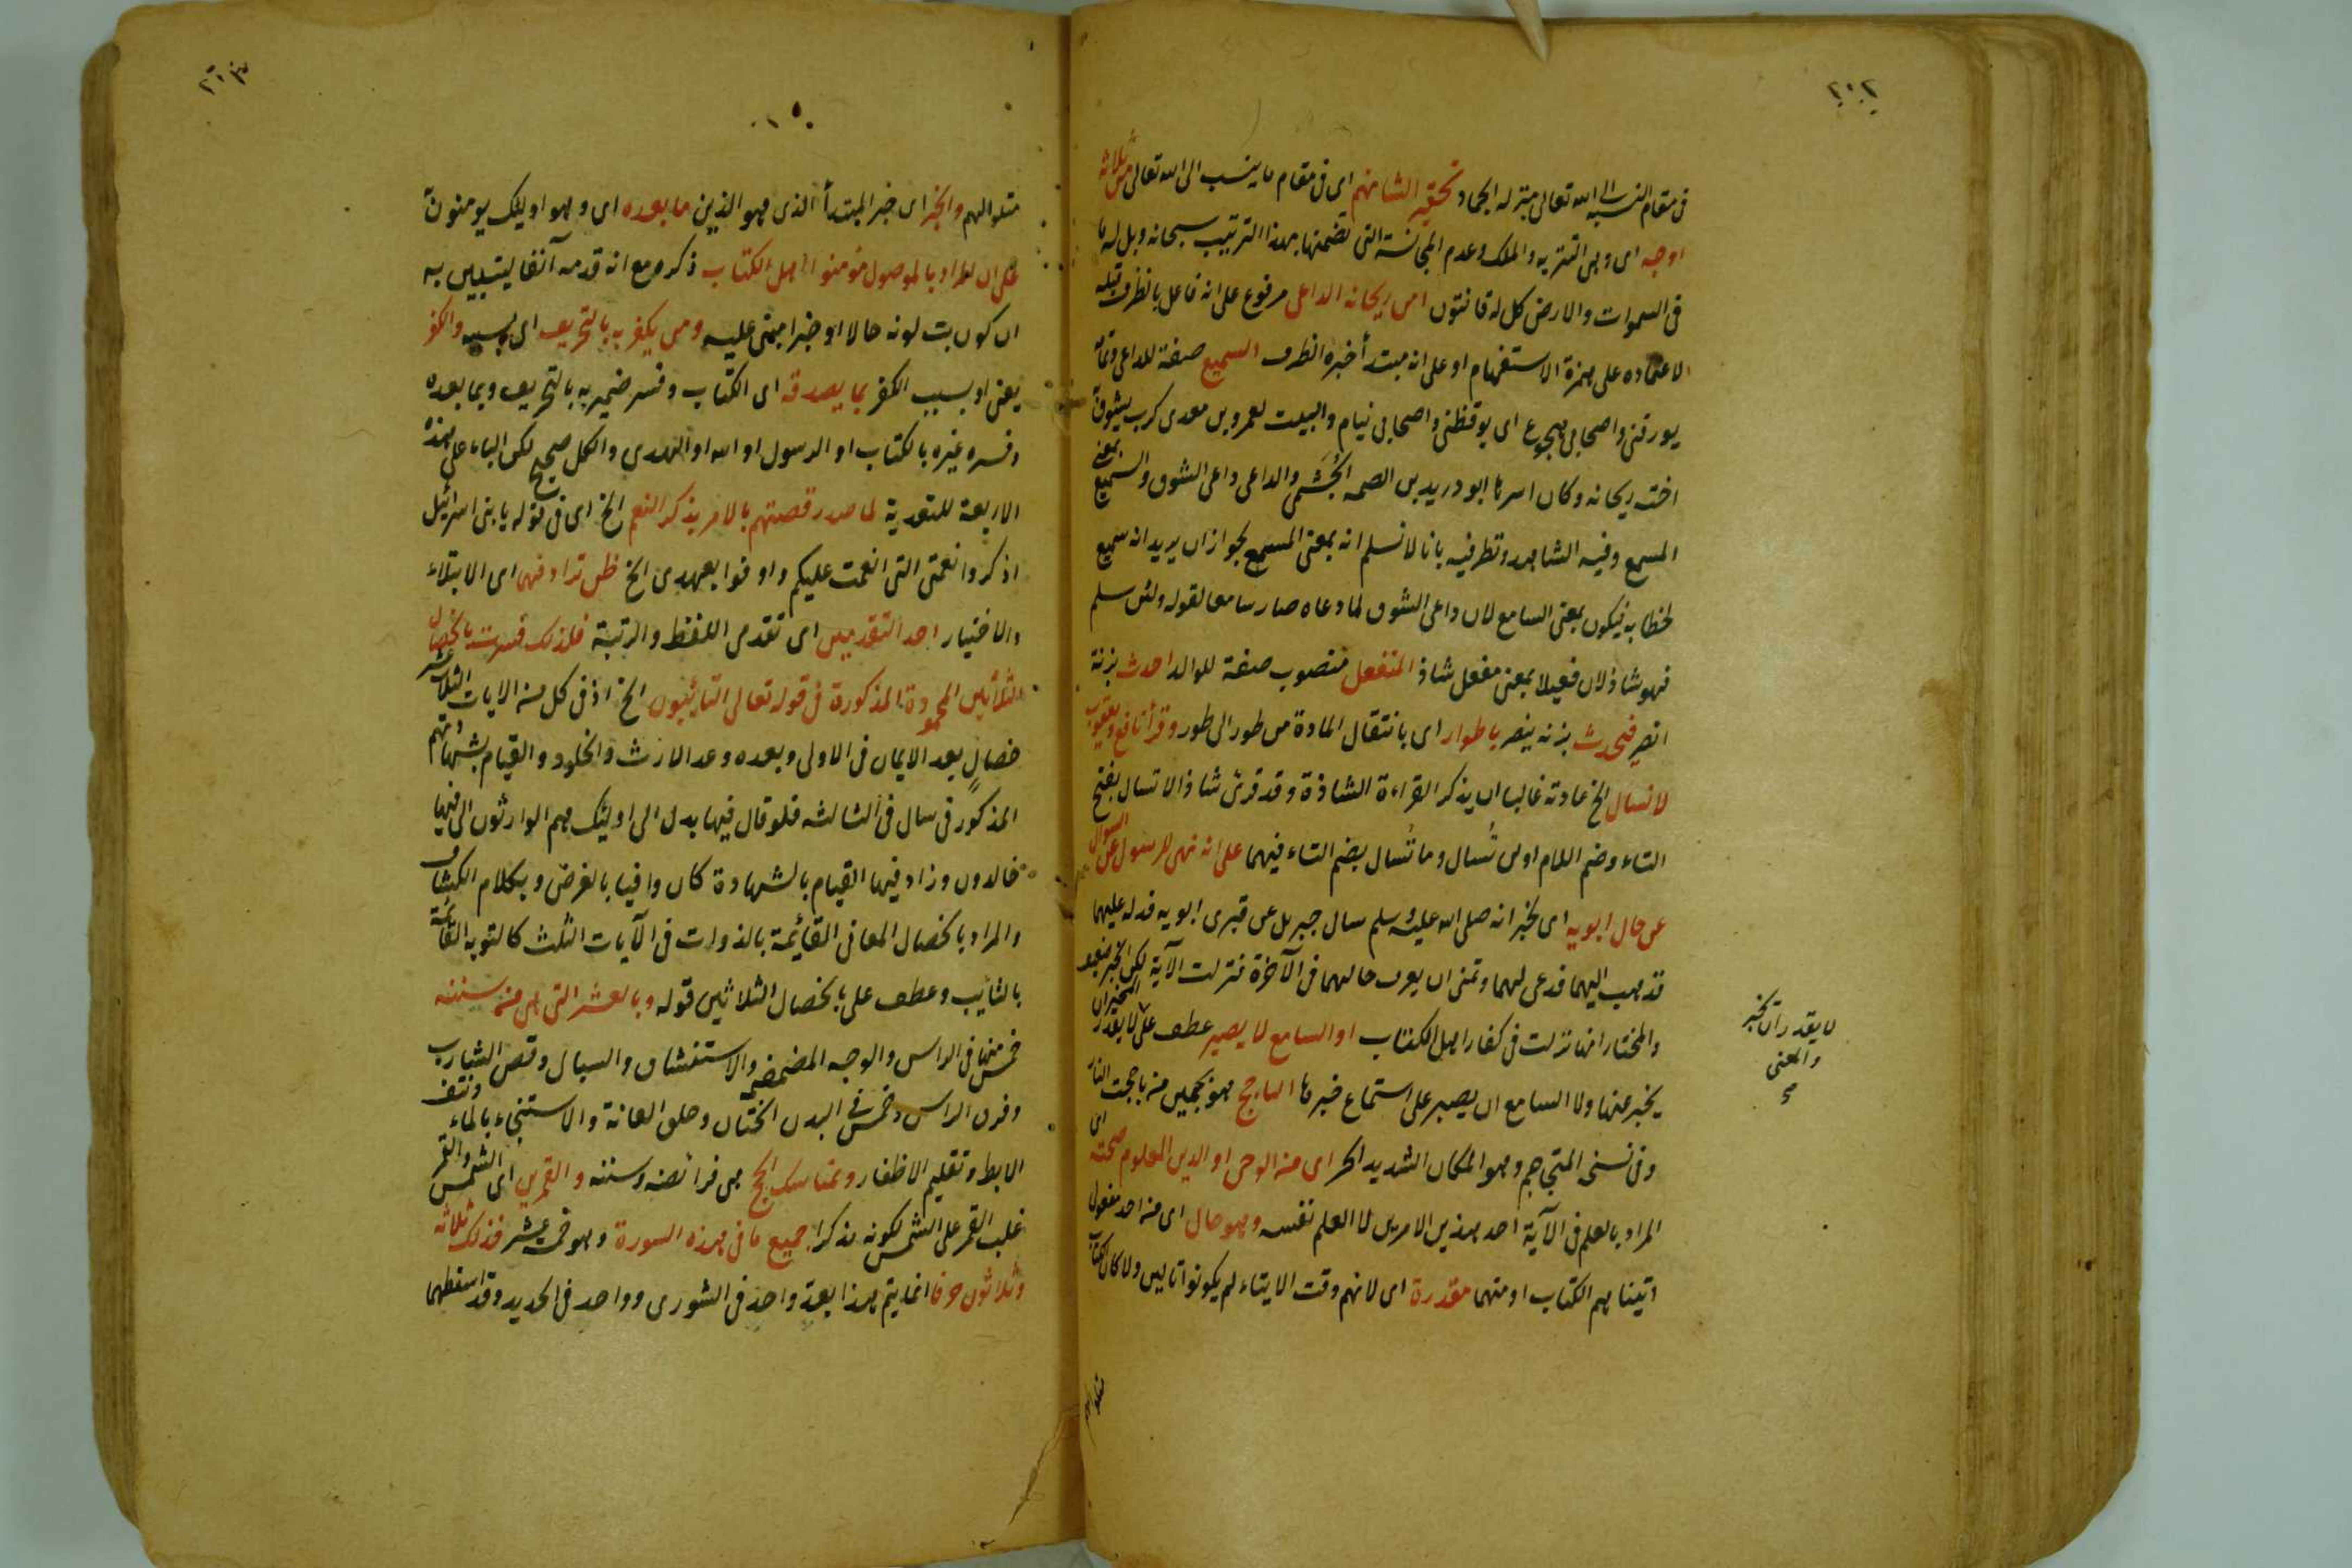 ٢٠٢
فى مقام النسبة الى الله تعالى منزلة الجماد تحقير الشانهم اى فى مقام ما ينسب الى الله تعالى من ثلاثة
اوجه اى وهى التنزيه والملك وعدم المجانسة التى تضمنها بهذا الترتيب سبحانه وبل له ما
فى السموات والارض كل له قانتون امن ريحانة الداعى مرفوع على انه فاعل بالظرف قبله
لاعتماده على همزة الاستفهام او على انه مبتدأ خبره الظرف السميع صفة للداعى وتمامه
يورقنى واصحابى هجوع اى يوقظنى واصحابى نيام والبيت لعمرو بن معدى كرب يتشوق
اخته ريحانة وكان اسرها ابو دريد بن الصمة الجُشَمى والداعى داعى الشوق والسميع بمعنى
المسمع وفيه الشاهد وتطر فيه بانا لا نسلم انه بمعنى المسمع لجواز ان يريد انه سميع
لخطابه فيكون بمعنى السامع لان داعى الشوق لما دعاه صار سامعا لقوله ولئن سلم
فهو شاذ لان فعيلا بمعنى مفعل شاذ المنفعل منصوب صفة للوالد احدث بزنة
انصر فيحدث بزنة ينصر باطوار اى بانتقال المادة من طور الى طور وقرأ نافع ويعقوب
لا تسال الخ عادته غالبا ان يذكر القراءة الشاذة وقد قرئ شاذا لا تسال بفتح
التاء وضم اللام اولن تُسال وما تُسال بضم التاء فيهما على انه نهى للرسول عن السؤال
عن حال ابويه اى لخبر انه صلى الله عليه وسلم سال جبريل عن قبرى ابويه فدله عليهما
فذهب اليهما فدعى لهما وتمنى ان يعرف حالهما فى الآخرة فنزلت الآية لكن الخبر ضعيف
والمختار انها نزلت فى كفار اهل الكتاب او السامع لا يصير عطف على لا يقدر المخبر ان
يخبر عنها ولا السامع ان يصبر على استماع خبرها المتاجج بهمز بجيمين من تاججت النار
وفى نسخ المتجاحم وهو المكان الشديد الحر اى من الوحى او الدين المعلوم صحته اى
المراد بالعلم فى الآية احد هذين الامرين لا العلم نفسه وهو حال اى من احد مفعولى
اتينا هم الكتاب او منهما مقدرة اى لانهم وقت الايتاء لم يكونوا تالين ولا كان الكتاب
لا يقدر ان يخبر
والمعنى
متلوا لهم والخبر اى خبر المبتدأ الذى هو الذين ما بعده اى وهو اوليك يومنون
على ان المراد بالموصول مؤمنوا اهل الكتاب ذكره مع انه قدمه آنفا ليتبين به
ان كون يتلونه حالا او خبرا مبنى عليه ومن يكفر به بالتحريف اى بسببه والكفر
يعنى او بسبب الكفر بما يصدقه اى الكتاب وفسر ضمير به بالتحريف وبما بعده
وفسره غيره بالكتاب او الرسول او الله او الهدى والكل صحيح لكن الباء على هذه
الاربعة للتعدية لما صدر قصتهم بالامر بذكر النعم الخ اى فى قوله يا بنى اسرائيل
اذكروا نعمتى التى انعمت عليكم واوفوا بعهدى الخ ظن ترادفهما اى الابتلاء
والاختيار احد التقدمين اى تقدمى اللفظ والرتبة فلذلك فسرت بالخصال
الثلاثين المحمودة المذكورة فى قوله تعالى التائبون الخ اذ فى كل من الايات الثلاث عشر
خصالٍ بعد الايمان فى الاولى وبعده وعد الارث والخلود والقيام بشهادتهم
المذكور فى سال فى الثالثة فلو قال فيها بدل الى اوليك هم الوارثون الى فيها
خالدون وزاد فيها القيام بالشهادة كان وافيا بالغرض وبكلام الكشاف
والمراد بالخصال المعانى القائمة بالذوات فى الآيات الثلث كالتوبه القائمة
بالتائب وعطف على بالخصال الثلاثين قوله وبالعشر التى هى من سننه
خمس منها فى الراس والوجه المضمضة والاستنشاق والسواك وقص الشارب
وفرق الراس وخمس فى البدن الختان وحلق العانة والاستنجاء بالماء ونتف
الابط وتقليم الاظفار وبمناسك الحج هى فرائضه وسننه والقمرين اى الشمس والقمر
غلب القمر على الشمس لكونه مذكرا جميع ما فى هذه السورة وهو خمسة عشر فذلك ثلاثة
وثلاثون حرفا انما يتم بهذا بعد واحد فى الشورى وواحد فى الحديد وقد اسقطهما